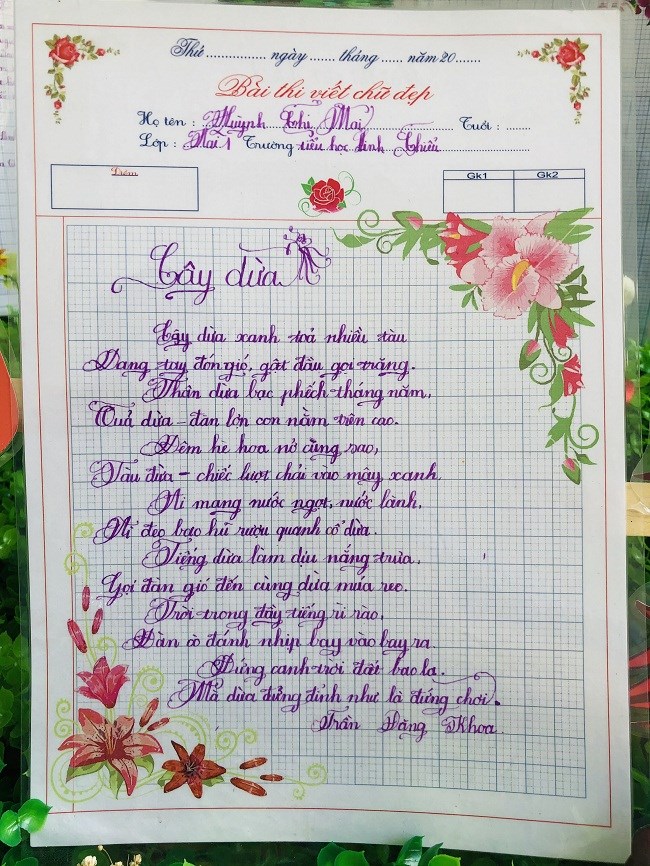 Thứ ................ ngày ....... tháng ...... năm 20 .......
Bài thi viết chữ đẹp
Họ tên : Huỳnh Thị Mai Tuổi : .......
Lớp : Mai 1 Trường tiểu học Linh Chiểu
Điểm
Gk1 Gk2
Cây dừa
Cây dừa xanh toả nhiều tàu
Dang tay đón gió, gật đầu gọi trăng.
Thân dừa bạc phếch tháng năm,
Quả dừa - đàn lợn con nằm trên cao.
Đêm hè hoa nở cùng sao,
Tàu dừa - chiếc lược chải vào mây xanh,
Ai mang nước ngọt, nước lành,
Ai đeo bao hũ rượu quanh cổ dừa.
Tiếng dừa làm dịu nắng trưa,
Gọi đàn gió đến cùng dừa múa reo.
Trời trong đầy tiếng rì rào,
Đàn cò đánh nhịp bay vào bay ra.
Đứng canh trời đất bao la.
Mà dừa đủng đỉnh như là đứng chơi.
Trần Đăng Khoa